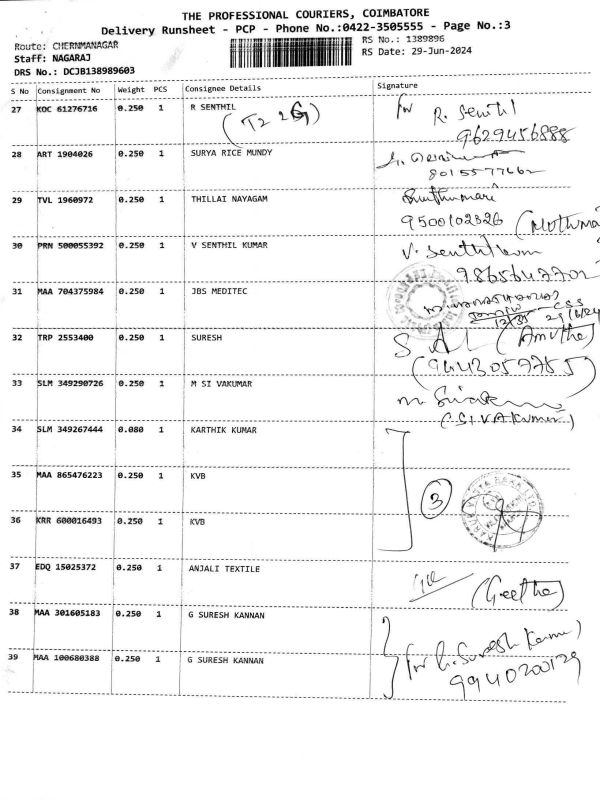 THE PROFESSIONAL COURIERS, COIMBATORE
Delivery Runsheet - PCP - Phone No.:0422-3505555 - Page No.:3
Route: CHERNMANAGAR
RS No.: 1389896
Staff: NAGARAJ
RS Date: 29-Jun-2024
DRS No.: DCJB138989603
S No Consignment No Weight PCS Consignee Details Signature
27 KOC 61276716 0.250 1 R SENTHIL for R. Senthil
9629456888
28 ART 1904026 0.250 1 SURYA RICE MUNDY
8015577462
29 TVL 1960972 0.250 1 THILLAI NAYAGAM
9500102326
30 PRN 500055392 0.250 1 V SENTHIL KUMAR V. Senthil
9865647702
31 MAA 704375984 0.250 1 JBS MEDITEC
32 TRP 2553400 0.250 1 SURESH (Amutha)
(9643057785)
33 SLM 349290726 0.250 1 M SI VAKUMAR
(SIVAKumar)
34 SLM 349267444 0.080 1 KARTHIK KUMAR
35 MAA 865476223 0.250 1 KVB
3
36 KRR 600016493 0.250 1 KVB
37 EDQ 15025372 0.250 1 ANJALI TEXTILE
(Geetha)
38 MAA 301605183 0.250 1 G SURESH KANNAN
for G. Suresh Kannan
39 MAA 100680388 0.250 1 G SURESH KANNAN
9940200129